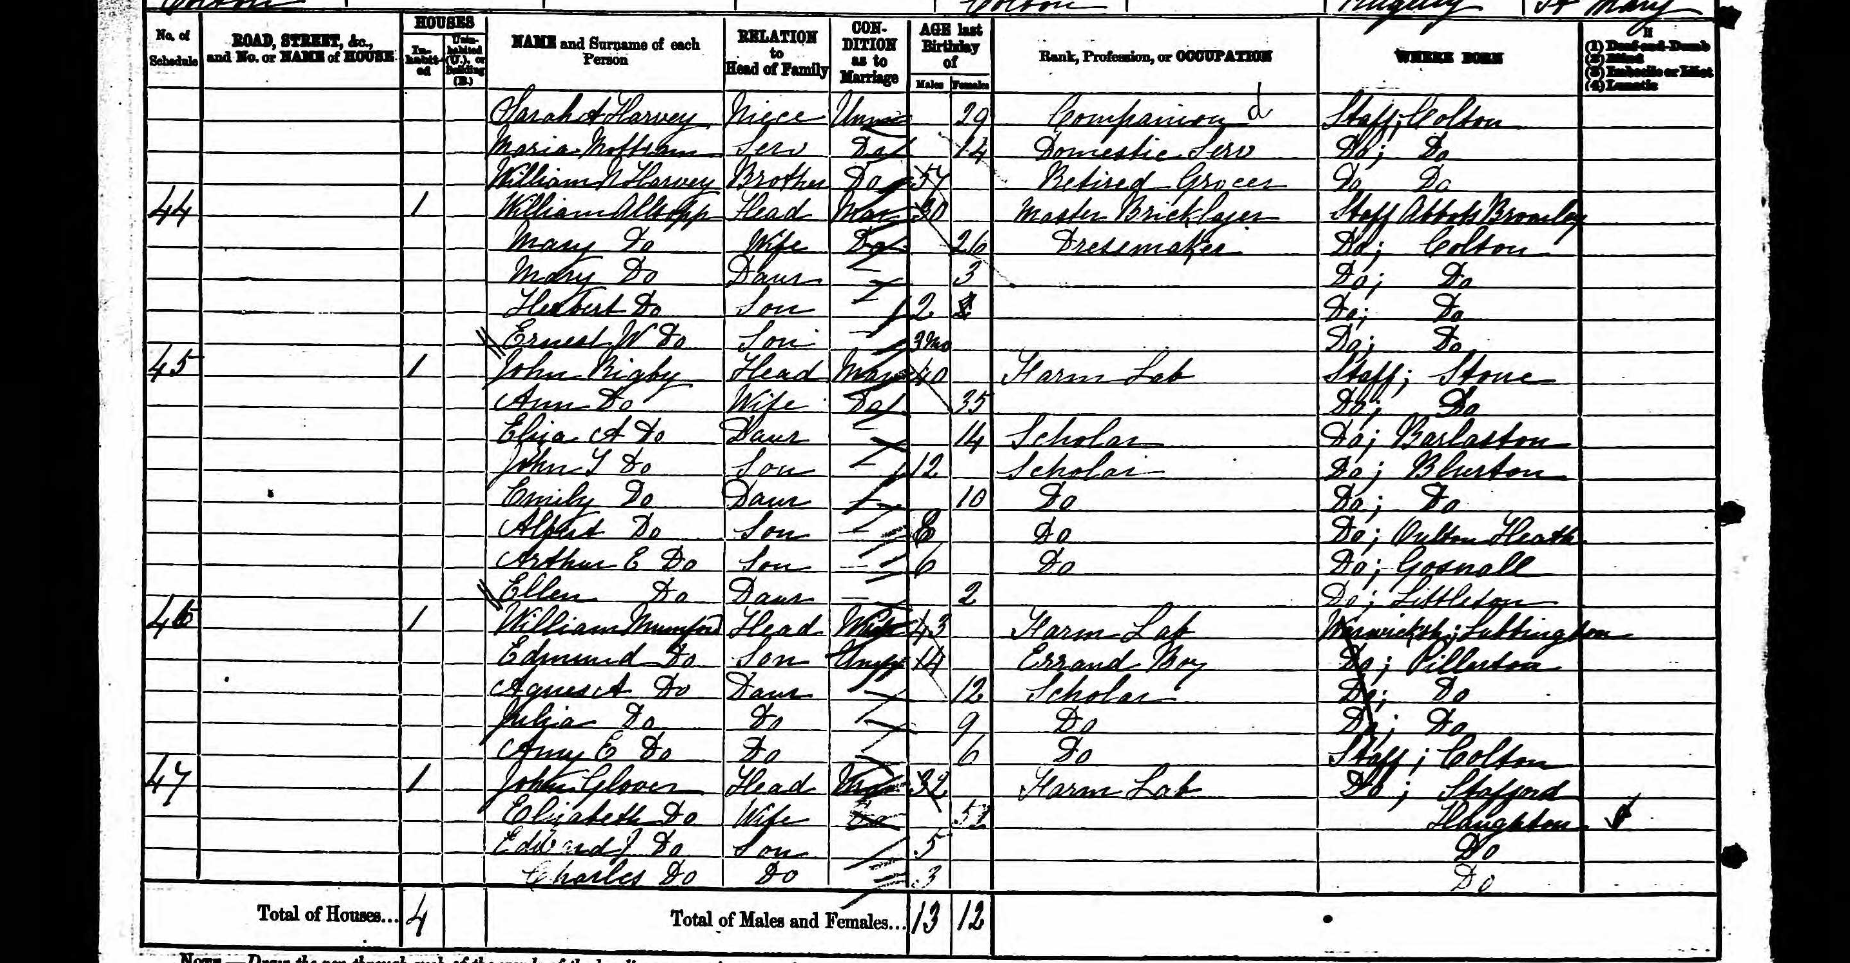 Colton Colton Rugeley St Mary
No. of Schedule ROAD, STREET, &c., and No. or NAME of HOUSE HOUSES Inhabited Uninhabited (U.), or Building (B.) NAME and Surname of each Person RELATION to Head of Family CONDITION as to Marriage AGE last Birthday of Males Females Rank, Profession, or OCCUPATION WHERE BORN (1) Deaf-and-Dumb (2) Blind (3) Imbecile or Idiot (4) Lunatic
Sarah A Harvey Niece Unm 29 Companion d Staff; Colton
Maria Serv Do 14 Domestic Serv Do; Do
William N Harvey Brother Do 57 Retired Grocer Do Do
44 1 William Allsopp Head Mar 30 Master Bricklayer Staff Abbots Bromley
Mary Do Wife Do 26 Dressmaker Do; Colton
Mary Do Daur 3 Do; Do
Herbert Do Son 2 Do; Do
Ernest W Do Son 3mo Do; Do
45 1 John Rigby Head Mar 40 Farm Lab Staff; Stone
Ann Do Wife Do 35 Do; Do
Eliza A Do Daur 14 Scholar Do; Barlaston
John T Do Son 12 Scholar Do; Blurton
Emily Do Daur 10 Do Do; Do
Albert Do Son 8 Do Do; Oulton Heath
Arthur E Do Son 6 Do Do; Gosnall
Ellen Do Daur 2 Do; Littleton
46 1 William Mumford Head Widr 43 Farm Lab Warwicksh; Lubbington
Edmund Do Son Unm 14 Errand Boy Do; Pillerton
Agnes A Do Daur 12 Scholar Do; Do
Julia Do Do 9 Do Do; Do
Amy E Do Do 6 Do Staff; Colton
47 1 John Glover Head Mar 32 Farm Lab Do; Stafford
Elizabeth Do Wife Do Haughton
Edward J Do Son 5 Do
Charles Do Do 3 Do
Total of Houses... 4 Total of Males and Females... 13 12